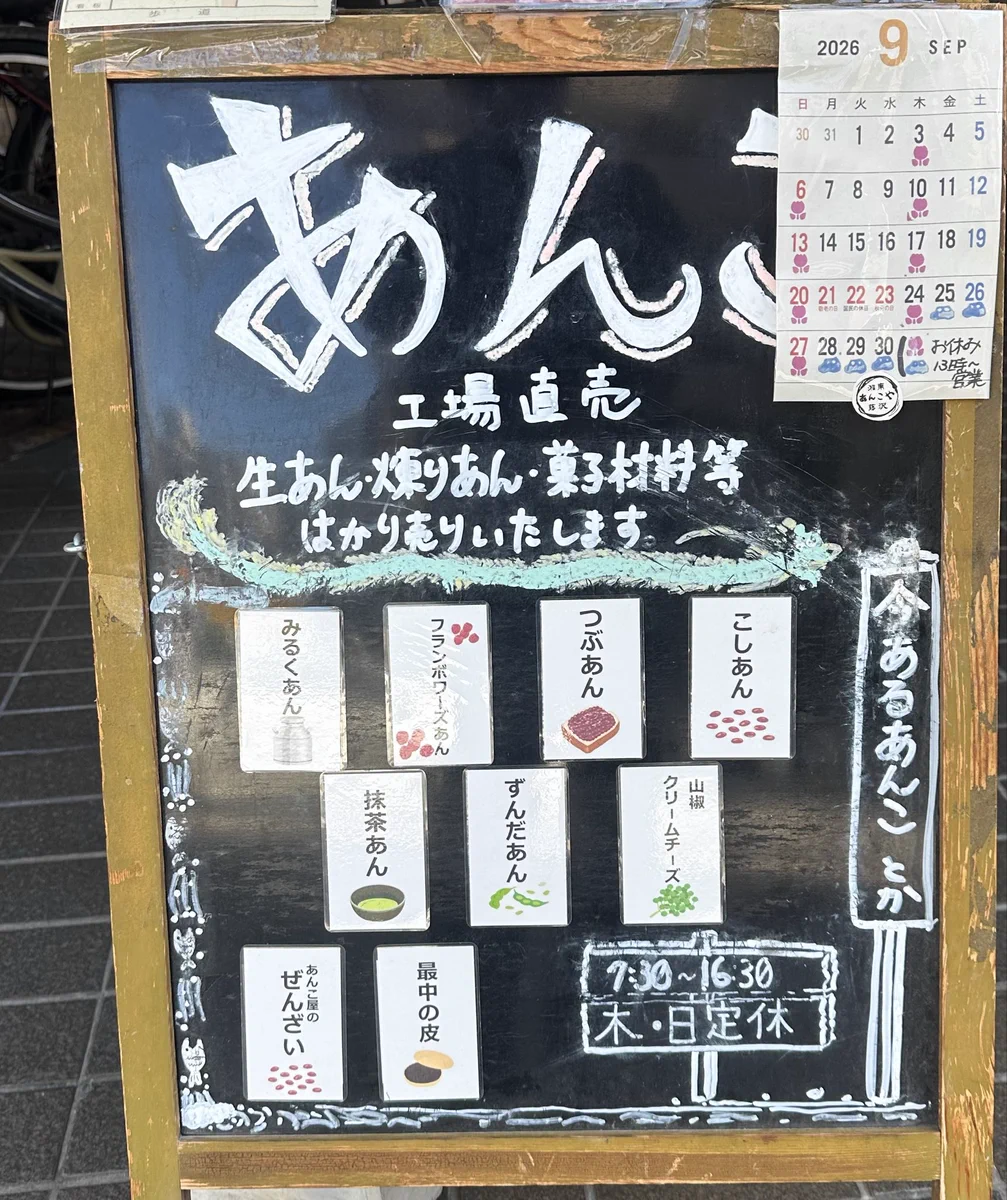 あんこ
工場直売
生あん・煉りあん・菓子材料等
はかり売りいたします
2026 9 SEP
日 月 火 水 木 金 土
30 31 1 2 3 4 5
6 7 8 9 10 11 12
13 14 15 16 17 18 19
20 21 22 23 24 25 26
敬老の日 国民の休日 秋分の日
27 28 29 30
お休み
13時〜
営業
あんこや
今あるあんことか
こしあん
つぶあん
フランボワーズあん
みるくあん
山椒
クリームチーズ
ずんだあん
抹茶あん
最中の皮
あんこ屋の
ぜんざい
9:30～16:30
木・日定休